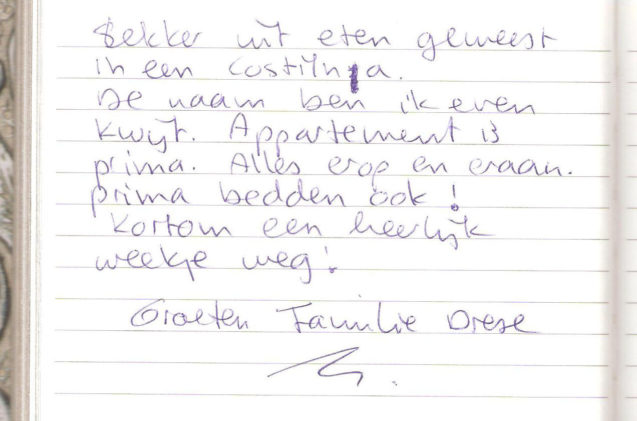 Lekker uit eten geweest
in een Costilnia.
De naam ben ik even
kwijt. Appartement is
prima. Alles erop en eraan.
prima bedden ook!
Kortom een heerlijk
weekje weg!
Groeten Familie Drese